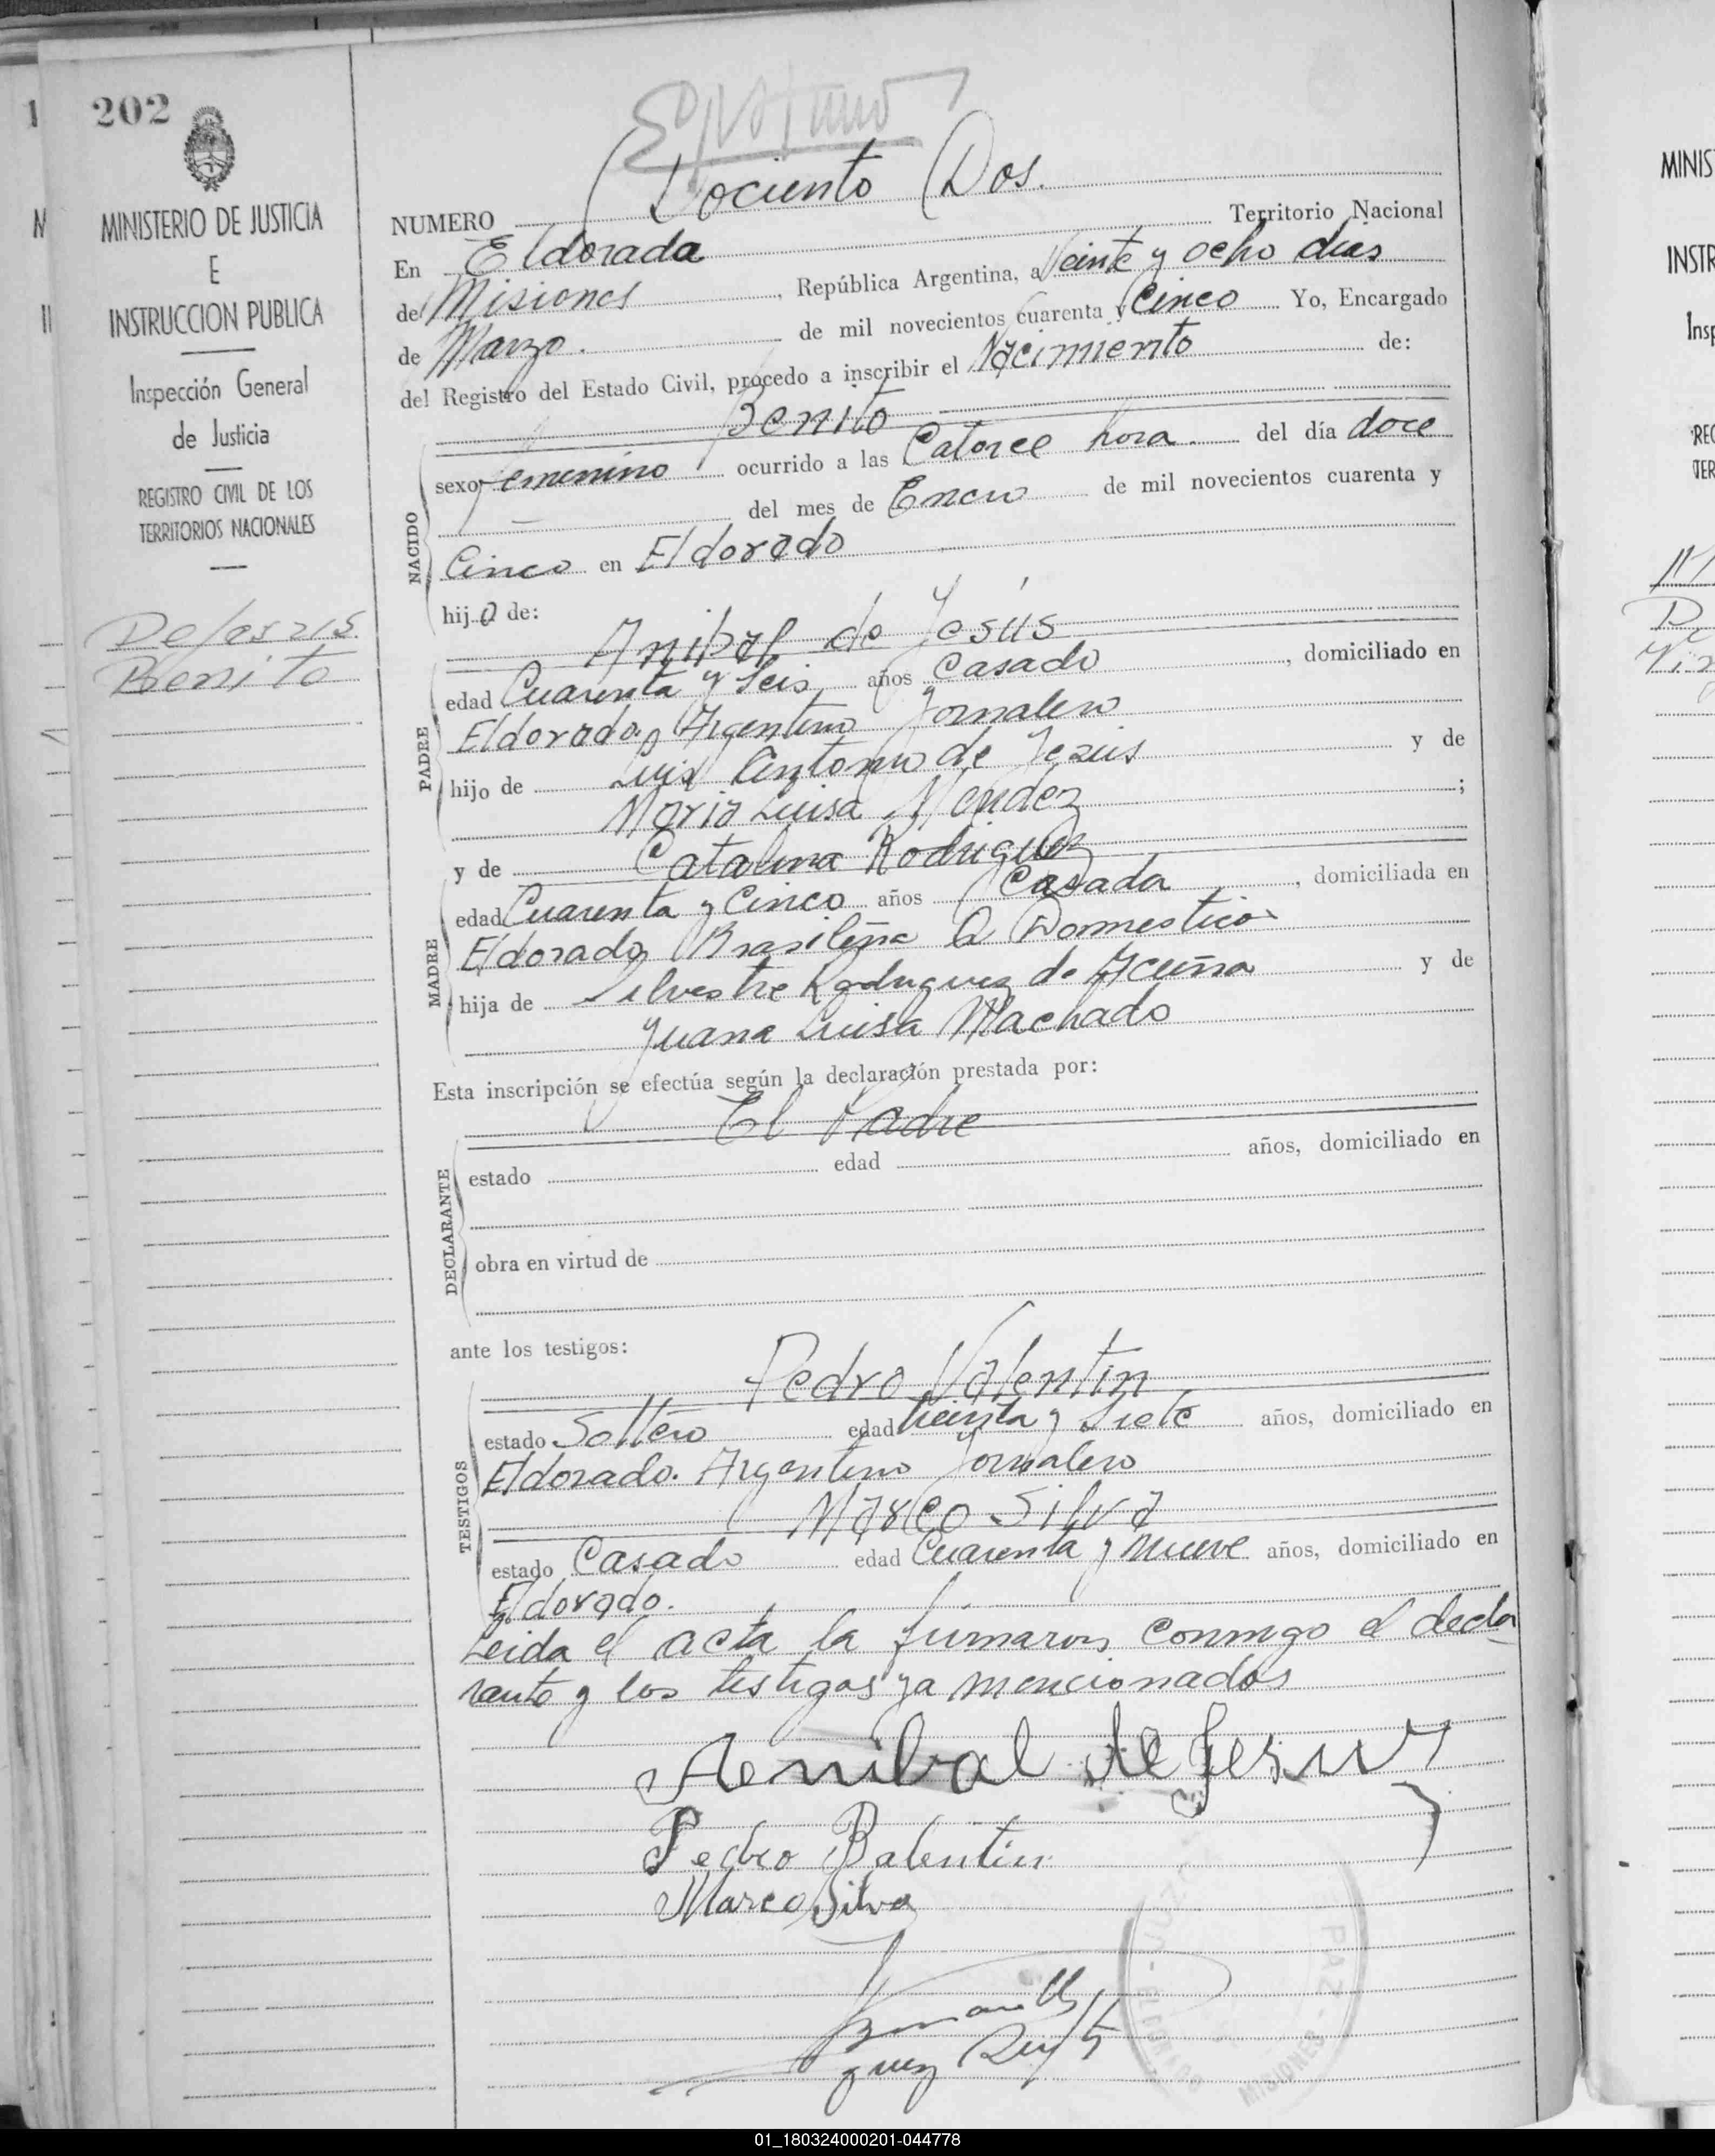 202
MINISTERIO DE JUSTICIA
E
INSTRUCCION PUBLICA
Inspección General
de Justicia
REGISTRO CIVIL DE LOS
TERRITORIOS NACIONALES
De Jesus
Benito
NUMERO Dociento Dos.
En Eldorada Territorio Nacional
de Misiones, República Argentina, a Veinte y ocho dias
de Marzo. de mil novecientos cuarenta y Cinco Yo, Encargado
del Registro del Estado Civil, procedo a inscribir el Nacimiento de:
Benito
NACIDO
sexo femenino ocurrido a las Catorce hora. del día doce
del mes de Enero de mil novecientos cuarenta y
Cinco en Eldorado
hijo de:
Anibal de Jesús
PADRE
edad Cuarenta y Seis años Casado, domiciliado en
Eldorado. Argentino Jornalero
hijo de Luis Antonio de Jesús y de
Maria Luisa Mendez;
y de Catalina Rodriguez
MADRE
edad Cuarenta y Cinco años Casada, domiciliada en
Eldorado, Brasileña Q Domesticos
hija de Silvestre Rodriguez de Acuña y de
Juana Luisa Machado
Esta inscripción se efectúa según la declaración prestada por:
El Padre
DECLARANTE
estado edad años, domiciliado en
obra en virtud de
ante los testigos:
Pedro Valentin
TESTIGOS
estado Soltero edad treinta y Siete años, domiciliado en
Eldorado. Argentino Jornalero
Marco Silva
estado Casado edad Cuarenta y nueve años, domiciliado en
Eldorado.
Leida el acta la firmaron conmigo el decla
rante y los testigos ya mencionados
Annibal de Jesus
Pedro Balentin
Marco Silva
PAZ - MISIONES
01_180324000201-044778